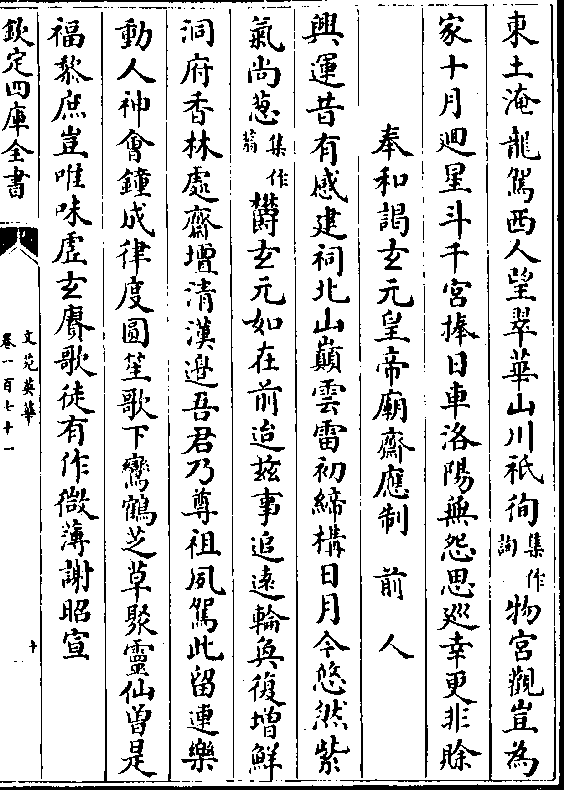 東土淹龍駕西人望翠華山川祇徇集作詢物宮觀豈為
家十月迴星斗千官捧日車洛陽無怨思廵幸更非賒
奉和謁玄元皇帝廟齋應制 前人
興運昔有感建祠北山巔雲雷初締構日月今悠然紫
氣尚蔥集作蓊欝玄元如在前迨兹事追遠輪奐復增鮮
洞府香林處齋壇清漢邉吾君乃尊祖夙駕此留連樂
動人神會鐘成律度圓笙歌下鸞鶴芝草聚靈仙曽是
福黎庶豈唯味虚玄賡歌徒有作微薄謝昭宣
欽定四庫全書
文苑英華
卷一百七十一
十